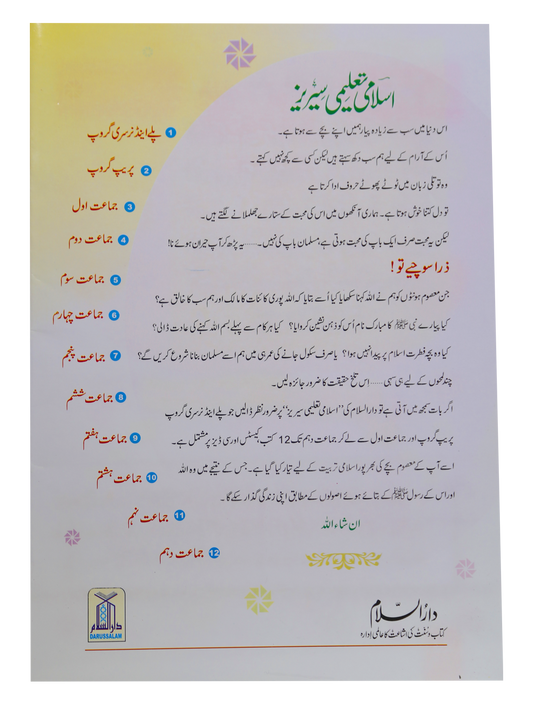 اسلامی تعلیمی سیریز
اس دنیا میں سب سے زیادہ پیار ہمیں اپنے بچے سے ہوتا ہے۔
اُس کے آرام کے لیے ہم سب دکھ سہتے ہیں لیکن کسی سے کچھ نہیں کہتے۔
وہ تو تلی زبان میں ٹوٹے پھوٹے حروف ادا کرتا ہے
تو دل کتنا خوش ہوتا ہے۔ ہماری آنکھوں میں اس کی محبت کے ستارے جھلملانے لگتے ہیں۔
لیکن یہ محبت صرف ایک باپ کی محبت ہوتی ہے، مسلمان باپ کی نہیں۔...... یہ پڑھ کر آپ حیران ہوئے نا!
ذرا سوچیے تو!
جن معصوم ہونٹوں کو ہم نے اللہ کہنا سکھایا کیا اُسے بتایا کہ اللہ پوری کائنات کا مالک اور ہم سب کا خالق ہے؟
کیا پیارے نبی ﷺ کا مبارک نام اُس کو ذہن نشین کروایا؟ کیا ہر کام سے پہلے بسم اللہ کہنے کی عادت ڈالی؟
کیا وہ بچہ فطرت اسلام پر پیدا نہیں ہوا؟ یا صرف سکول جانے کی عمر ہی میں ہم اسے مسلمان بنانا شروع کریں گے؟
چند لمحوں کے لیے ہی سہی...... اس تلخ حقیقت کا ضرور جائزہ لیں۔
اگر بات سمجھ میں آتی ہے تو دارالسلام کی "اسلامی تعلیمی سیریز" پر ضرور نظر ڈالیں جو پلے اینڈ نرسری گروپ
پریپ گروپ اور جماعت اول سے لے کر جماعت دہم تک 12 کتب کیسٹس اور سی ڈیز پر مشتمل ہے۔
اسے آپ کے معصوم بچے کی بھرپور اسلامی تربیت کے لیے تیار کیا گیا ہے۔ جس کے نتیجے میں وہ اللہ
اور اس کے رسول ﷺ کے بتائے ہوئے اصولوں کے مطابق اپنی زندگی گذار سکے گا۔
ان شاء اللہ
1 پلے اینڈ نرسری گروپ
2 پریپ گروپ
3 جماعت اول
4 جماعت دوم
5 جماعت سوم
6 جماعت چہارم
7 جماعت پنجم
8 جماعت ششم
9 جماعت ہفتم
10 جماعت ہشتم
11 جماعت نہم
12 جماعت دہم
دارالسلام
کتاب و سنت کی اشاعت کا عالمی ادارہ
دارالسلام
DARUSSALAM